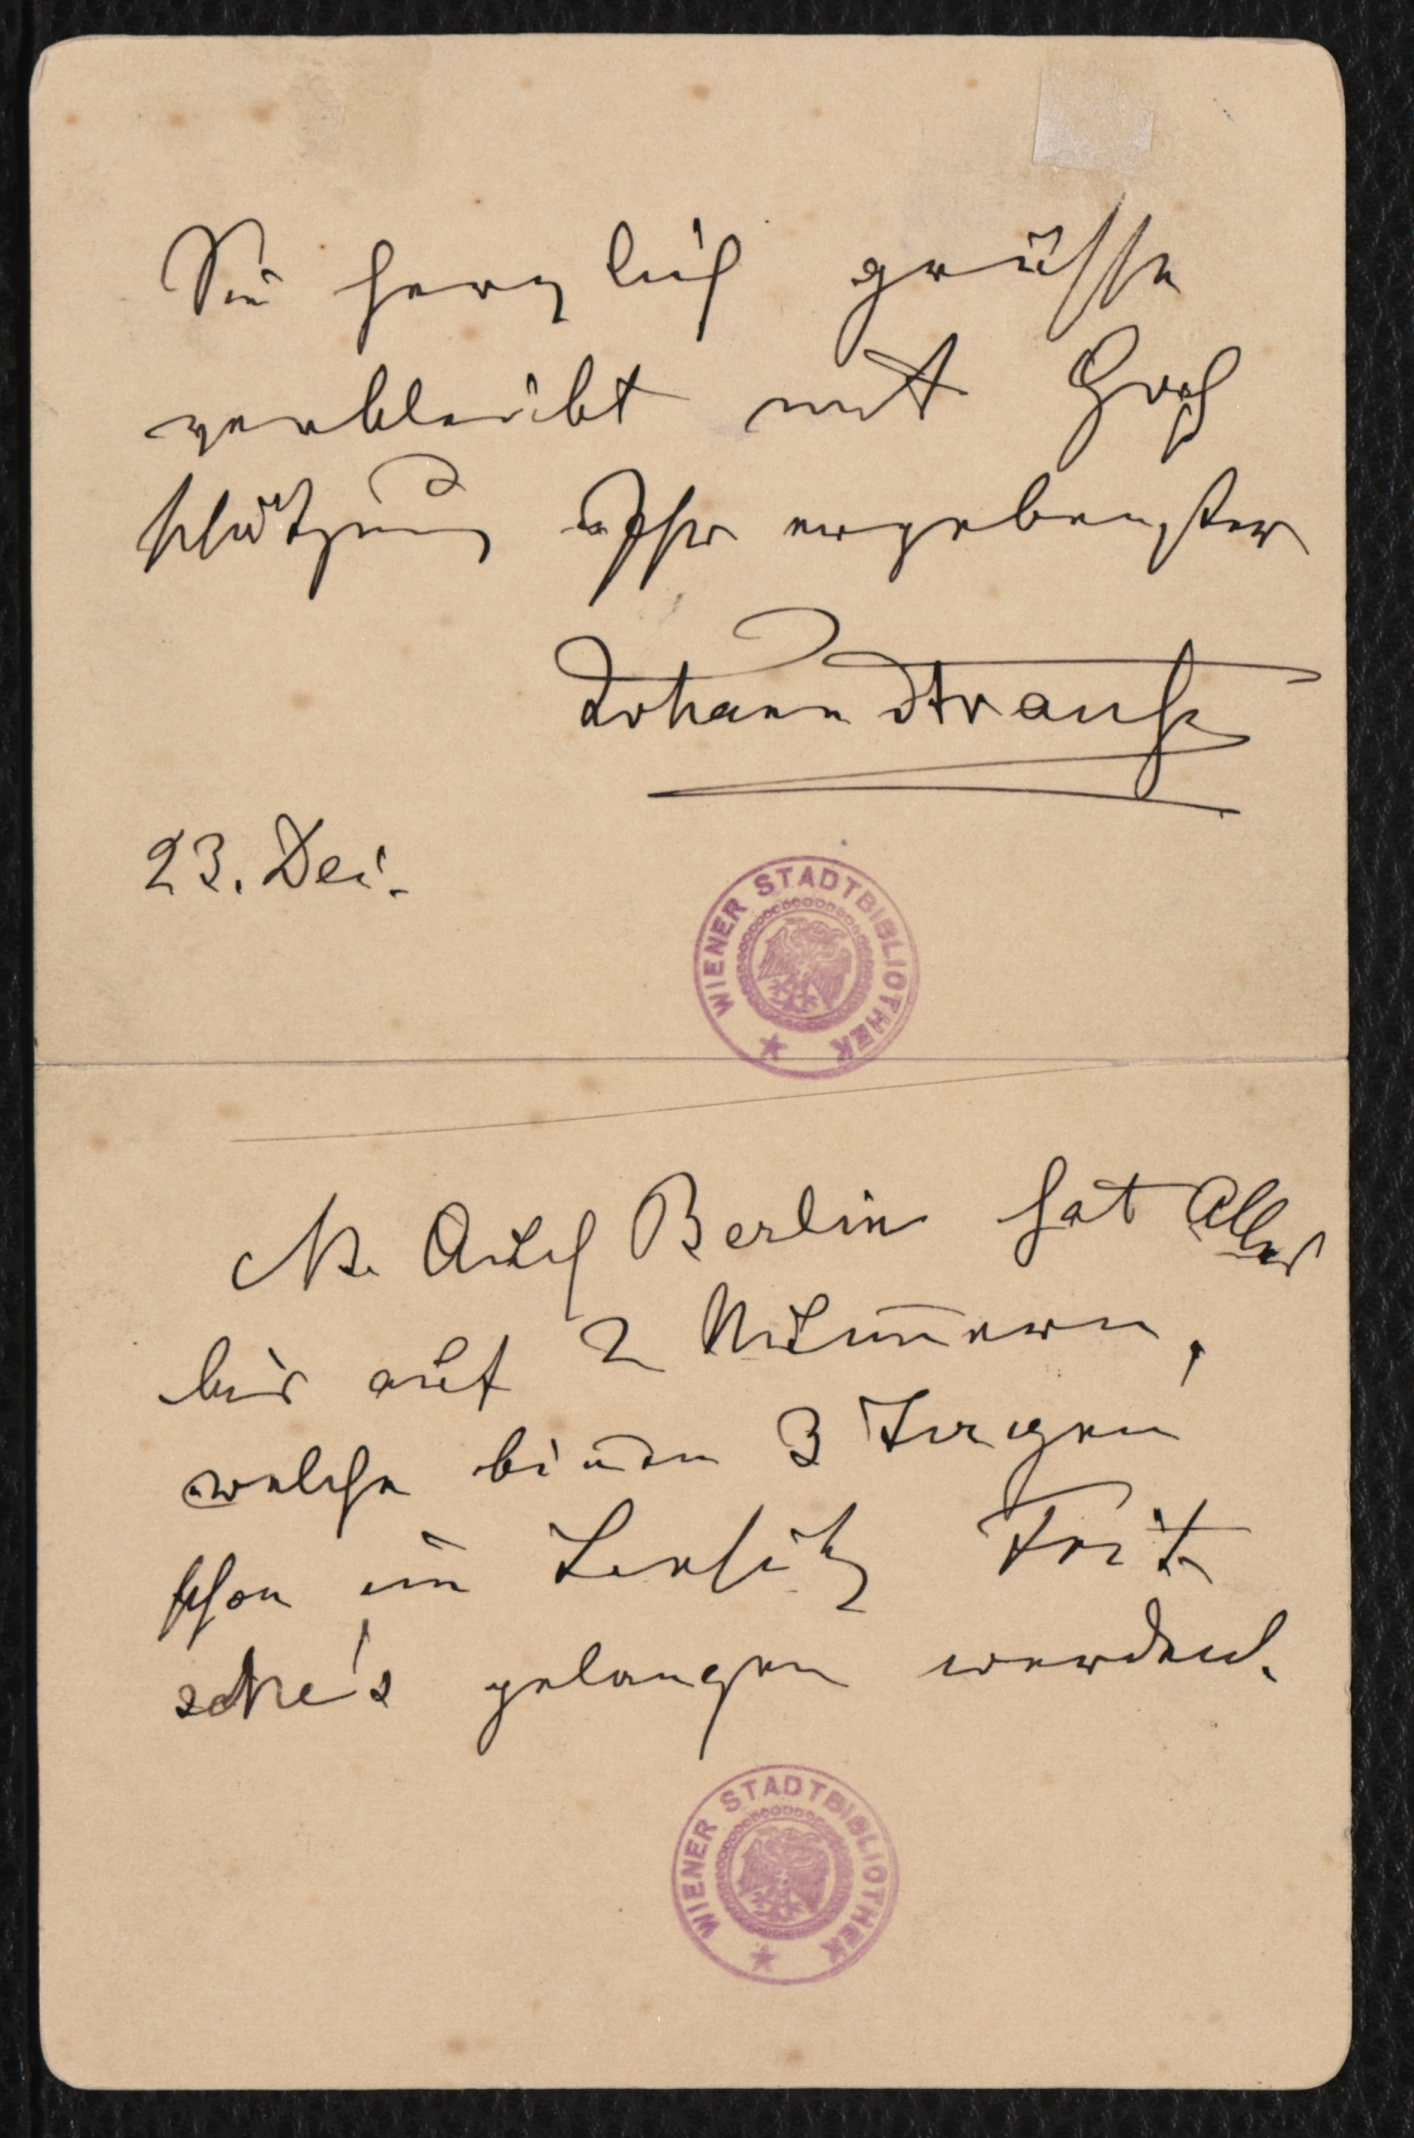 Sie herzlich grüsse
verbleibt mit Hoch
schätzung Ihr ergebenster
Johann Strauss
23. Dec.
WIENER STADTBIBLIOTHEK
NB. Auch Berlin hat Alles
bis auf 2 Nummern,
welche binnen 3 Tagen
schon im Besitz Fritz
sche's gelangen werden.
WIENER STADTBIBLIOTHEK